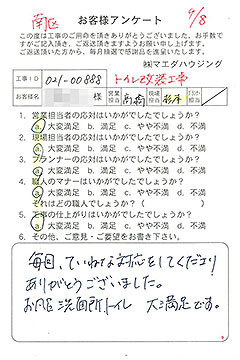 南区
お客様アンケート
9/8
この度は工事のご用命を頂きありがとうございました。お手数で
すがご記入頂き、ご返送頂きますようお願い申し上げます。
ご返送頂いた方から、毎月抽選で感謝品を進呈いたします。
㈱マエダハウジング
工事ID 021-00888 トイレ改装工事
お客様名 様 営業担当 高橋 現場担当
1. 営業担当者の応対はいかがでしたでしょうか?
a. 大変満足 b. 満足 c. やや不満 d. 不満
2. 現場担当者の応対はいかがでしたでしょうか?
a. 大変満足 b. 満足 c. やや不満 d. 不満
3. プランナーの応対はいかがでしたでしょうか?
a. 大変満足 b. 満足 c. やや不満 d. 不満
4. 職人のマナーはいかがでしたでしょうか?
a. 大変満足 b. 満足 c. やや不満 d. 不満
それはどの職人でしょうか?( )
5. 工事の仕上がりはいかがでしたでしょうか?
a. 大変満足 b. 満足 c. やや不満 d. 不満
6. その他、ご意見・ご要望をお書き下さい。
毎回、ていねいな対応をしてくださり
ありがとうございました。
お風呂 洗面所、トイレ 大満足です。